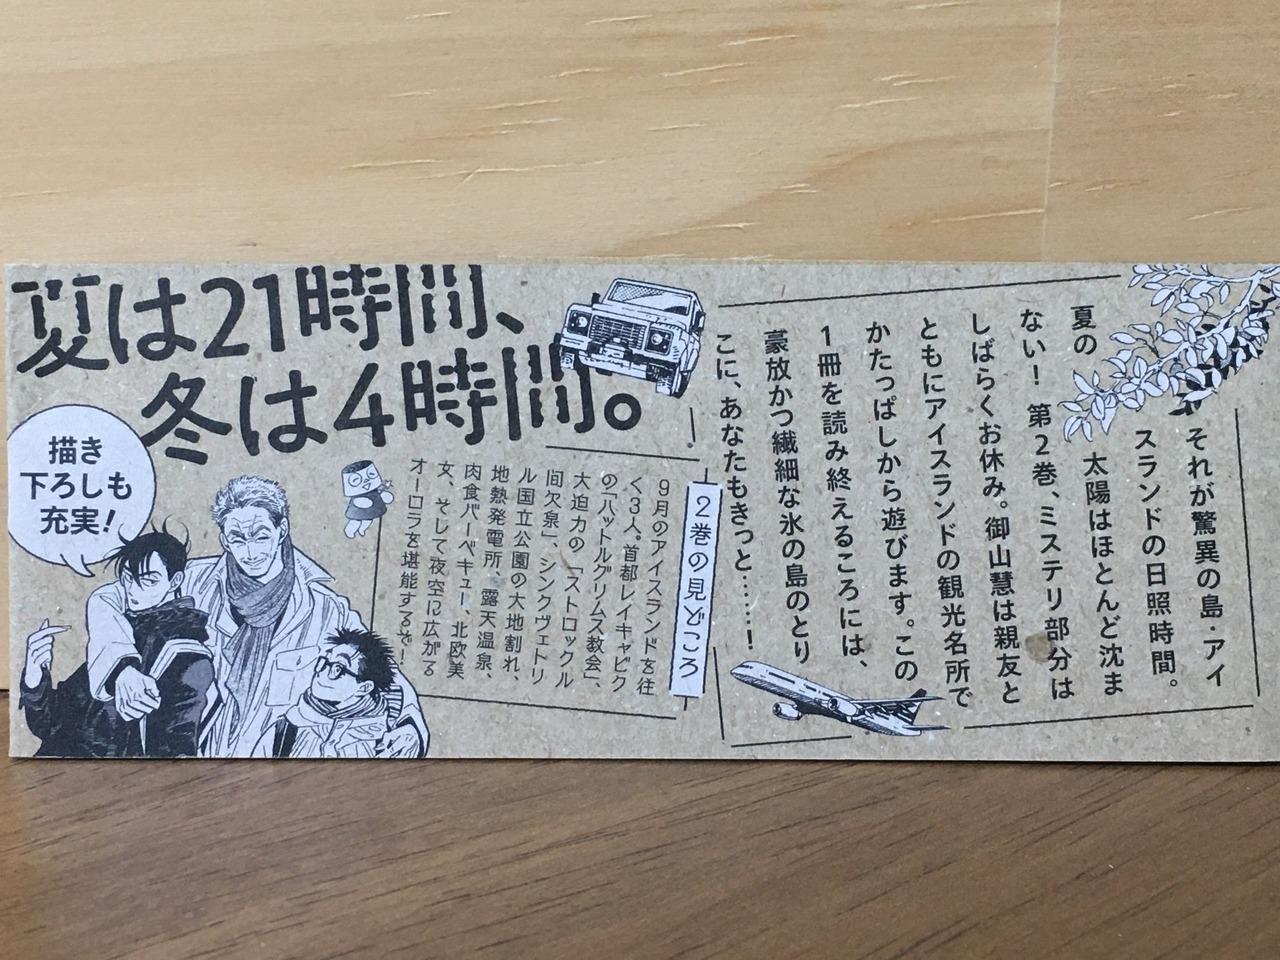 夏は21時間、
冬は4時間。
描き
下ろしも
充実!
それが驚異の島・アイ
スランドの日照時間。
夏の　　太陽はほとんど沈ま
ない! 第2巻、ミステリ部分は
しばらくお休み。御山慧は親友と
ともにアイスランドの観光名所で
かたっぱしから遊びます。この
1冊を読み終えるころには、
豪放かつ繊細な氷の島のとり
こに、あなたもきっと……!
2巻の見どころ
9月のアイスランドを往
く3人。首都レイキャビク
の「ハットルグリムス教会」、
大迫力の「ストロックル
間欠泉」、シンクヴェトリ
ル国立公園の大地割れ、
地熱発電所、露天温泉、
肉食バーベキュー、北欧美
女、そして夜空に広がる
オーロラを堪能するぞ!